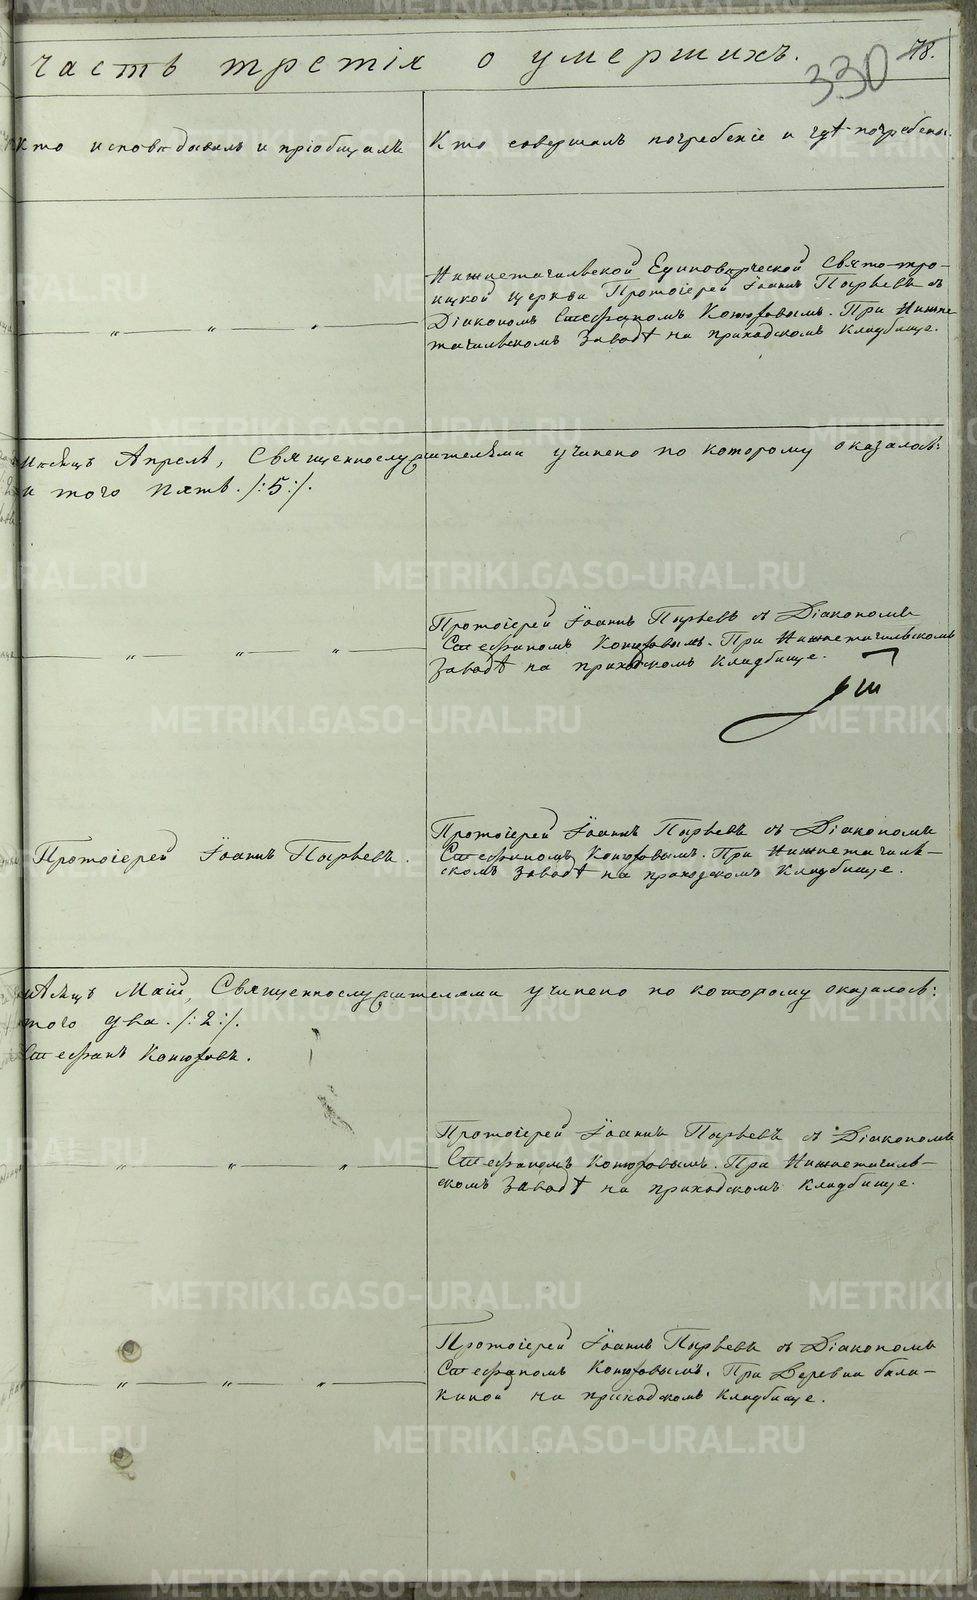 часть третія о умершихъ.
330
78.
Кто исповѣдовалъ и пріобщалъ
Кто совершалъ погребеніе и гдѣ погребены.
Нижнетагильской Единовѣрческой Свято-тро-
ицкой церкви Протоіерей Іоаннъ Пырьевъ съ
Діакономъ Стефаномъ Конюховымъ. При Нижне
тагильскомъ Заводѣ на приходскомъ кладбище.
" " "
мѣсяцъ Апрель, Священнослужителями учинено по которому оказалось:
итого пять. /:5:/.
Протоіерей Іоаннъ Пырьевъ съ Діакономъ
Стефаномъ Конюховымъ. При Нижнетагильскомъ
Заводѣ на приходскомъ кладбище.
" " "
Протоіерей Іоаннъ Пырьевъ.
Протоіерей Іоаннъ Пырьевъ съ Діакономъ
Стефаномъ Конюховымъ. При Нижнетагиль-
скомъ Заводѣ на приходскомъ кладбище.
мѣсяцъ Маій, Священнослужителями учинено по которому оказалось:
того два. /:2:/.
Стефанъ Конюховъ.
Протоіерей Іоаннъ Пырьевъ съ Діакономъ
Стефаномъ Конюховымъ. При Нижнетагиль-
скомъ Заводѣ на приходскомъ кладбище.
" " "
Протоіерей Іоаннъ Пырьевъ съ Діакономъ
Стефаномъ Конюховымъ. При Деревни бала-
киной на приходскомъ кладбище.
" " "
METRIKI.GASO-URAL.RU